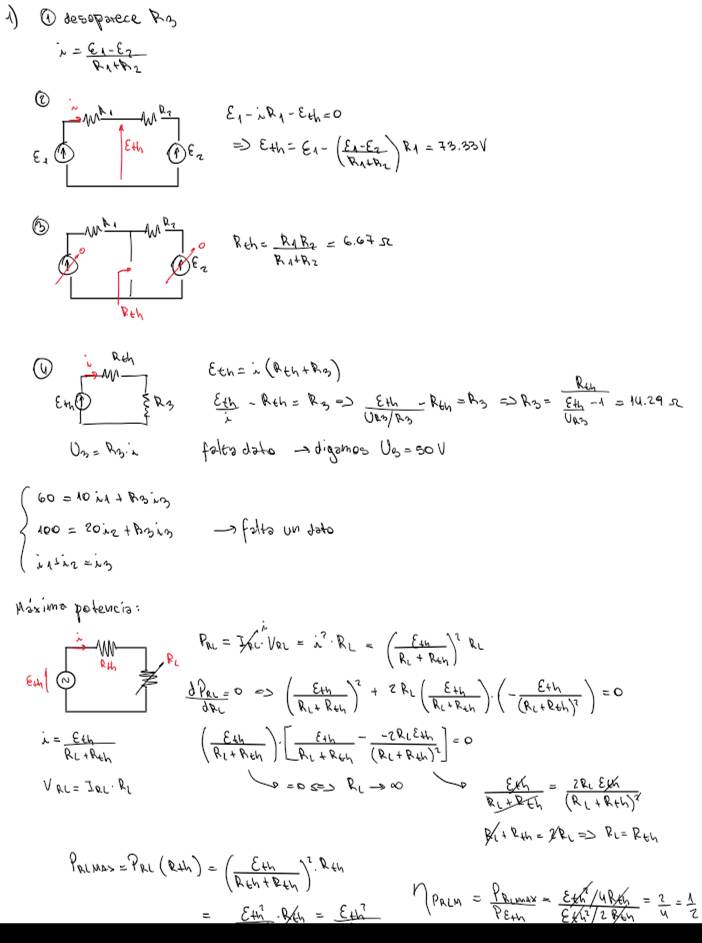 1) ① desaparece R3
i = (ε1-ε2)/(R1+R2)
②
i R1 R2
ε1 Eth ε2
ε1 - iR1 - εth = 0
=> εth = ε1 - ((ε1-ε2)/(R1+R2)) R1 = 73.33V
③
R1 R2
0 0 ε2
Rth
Rth = R1R2/(R1+R2) = 6.67 Ω
④
i Rth
εth R3
εth = i (Rth + R3)
εth/i - Rth = R3 => εth/(UR3/R3) - Rth = R3 => R3 = Rth/(εth/UR3 - 1) = 14.29 Ω
U3 = R3·i falta dato → digamos U3 = 50V
{ 60 = 10i1 + R3i3
100 = 20i2 + R3i3 → falta un dato
i1+i2 = i3
Máxima potencia:
i Rth RL
εth
PRL = IRL·VRL = i²·RL = (εth/(RL+Rth))² RL
i
dPRL/dRL = 0 => (εth/(RL+Rth))² + 2RL (εth/(RL+Rth))·(-εth/(RL+Rth)²) = 0
i = εth/(RL+Rth)
(εth/(RL+Rth))·[εth/(RL+Rth) - -2RLεth/(RL+Rth)²] = 0
VRL = IRL·RL
=0 <=> RL → ∞
εth/(RL+Rth) = 2RLεth/(RL+Rth)²
RL + Rth = 2RL => RL = Rth
PRLMAX = PRL (Rth) = (εth/(Rth+Rth))²·Rth
= εth² ·Rth = εth²
ηPRLM = PRLMAX/PEth = (εth²/4Rth)/(εth²/2Rth) = 2/4 = 1/2